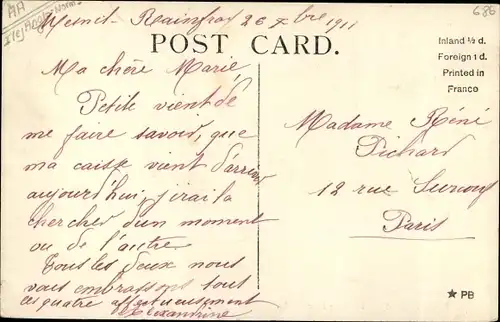 AA
686
Mesnil-Rainfray 26 7bre 1911
POST CARD.
Inland ½ d.
Foreign 1 d.
Printed in
France
Ma chère Marie
Petite vient de
me faire savoir, que
ma caisse vient d'arriver
aujourd'hui, j'irai la
chercher d'un moment
ou de l'autre
Tous les deux nous
vous embrassons tous
les quatre affectueusement
Alexandrine
Madame Réné
Pichard
12 rue Surcouf
Paris
★ PB